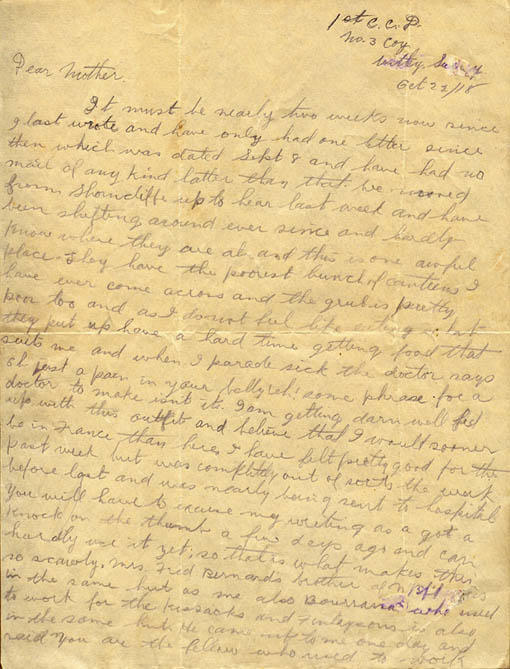 1st C.C.D.
No. 3 Coy
Witley, Surrey
Oct 22/18
Dear Mother,
It must be nearly two weeks now since
I last wrote and have only had one letter since
then which was dated Sept 8 and have had no
mail of any kind latter than that. We moved
from Shorncliffe up to hear last week and have
been shifting around ever since and hardly
know where they are at and this is one awful
place. They have the poorest bunch of canteens I
have ever come across and the grub is pretty
poor too and as I do'snt feel like eating what
they put up have a hard time getting food that
suits me and when I parade sick the doctor says
oh just a pain in your belly, eh! some phrase for a
doctor to make isn't it. I am getting darn well fed
up with this outfit and believe that I would sooner
be in France than here. I have felt pretty good for the
past week but was completely out of sorts the week
before last and was nearly being sent to hospital
You will have to excuse my writing as a got a
knock on the thumb a few days ago and can
hardly use it yet; so that is what makes this
so scrawly. Mrs. Fred Bernards brother is
in the same hut as me also who used
to work for the Kussacks and Finlaysons is also
in the same hut. He came up to me one day and
said You are the fellow who used to work